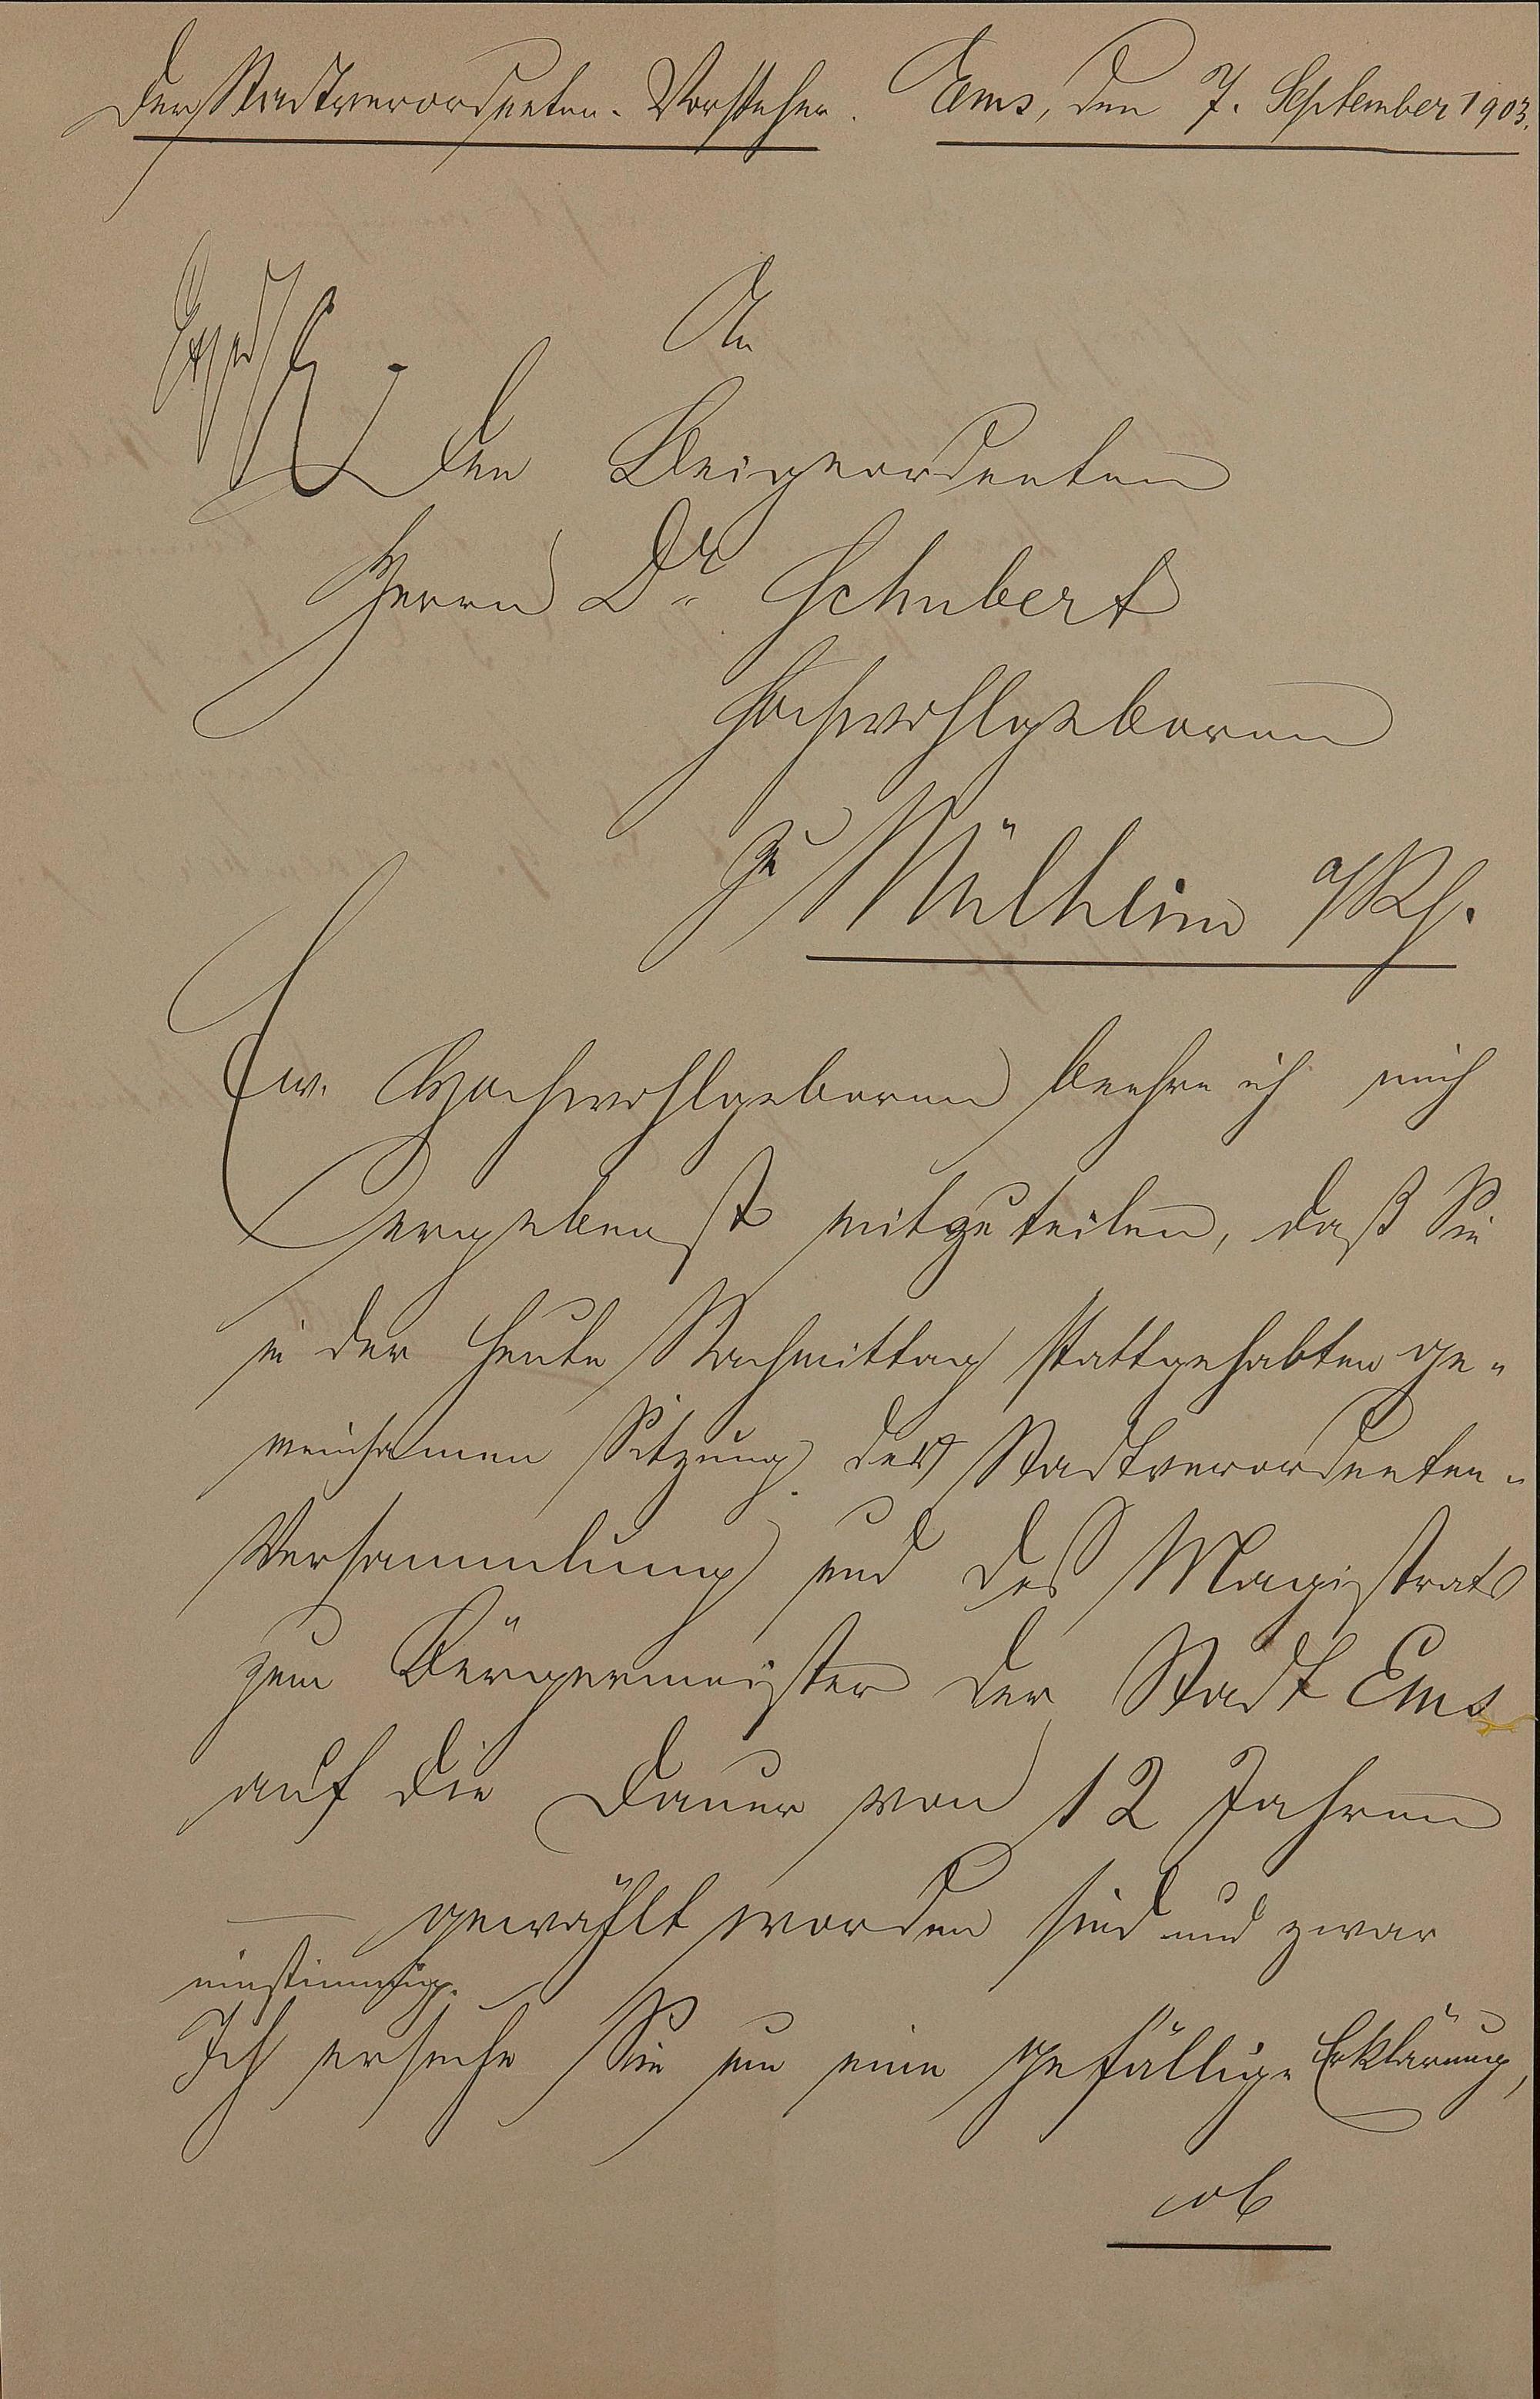 Der Stadtverordneten-Vorsteher. Ems, den 7. September 1903.
An
den Beigeordneten
Herrn Dr. Schubert
Hochwohlgeboren
zu Mülheim a/Rh.
Ew. Hochwohlgeboren beehre ich mich
ergebenst mitzuteilen, daß Sie
in der heute Nachmittag stattgehabten ge-
meinsamen Sitzung der Stadtverordneten-
Versammlung und des Magistrats
zum Bürgermeister der Stadt Ems
auf die Dauer von 12 Jahren
— gewählt worden sind und zwar
einstimmig. —
Ich ersuche Sie um eine gefällige Erklärung,
ob